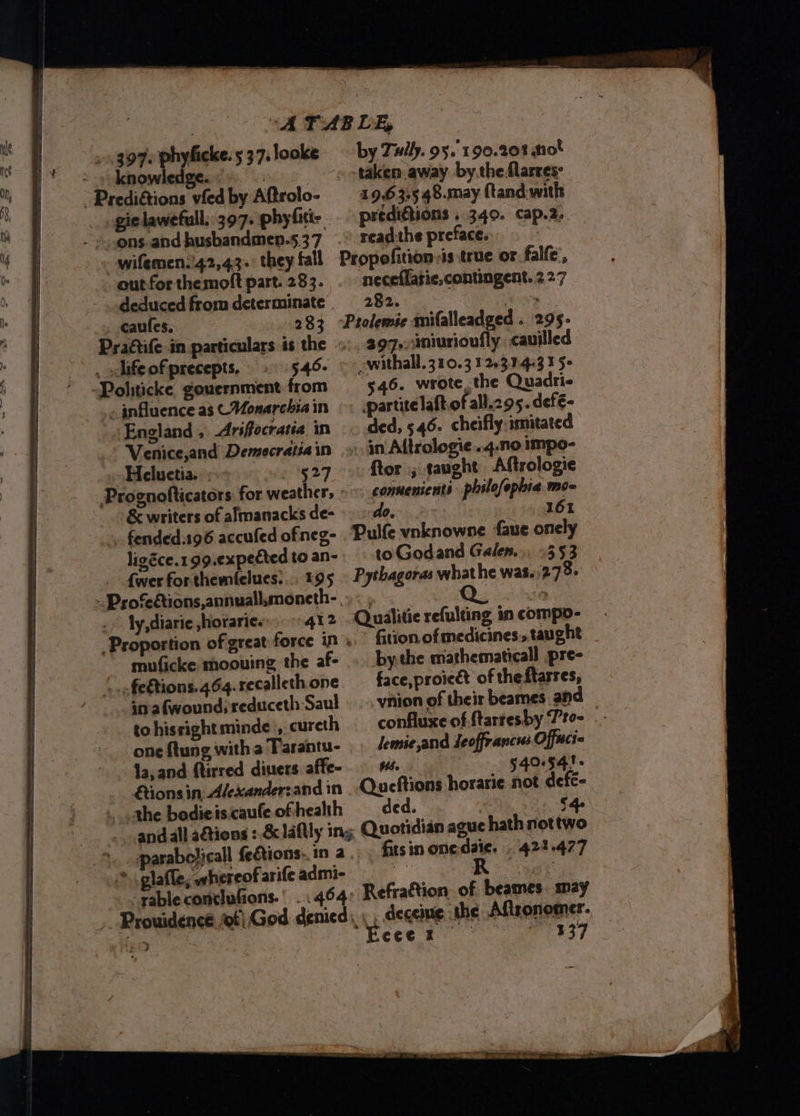 A TABLE,
397. phyficke. 537. looke
knowledge.
Predictions vſed by Aſtrolo-
gie lawefull. 397. phyſiti-
ons and husbandmen. 537
wiſemen. 42,43. they fall
out for the moſt part. 283.
deduced from determinate
cauſes. 283
Practiſe in particulars is the
life of precepts, 546.
Politicke gouernment from
influence as Monarchia in
England, Ariſtocratia in
Venice, and Democratia in
Heluetia. 527
Prognoſticators for weather,
& writers of almanacks de-
fended. 196 accuſed of neg-
ligēce. 199. expected to an-
ſwer for themſelues. 195
Profections, annuall, moneth-
ly, diarie, horarie. 412
Proportion of great force in
muſicke moouing the af-
fections. 464. recalleth one
in a ſwound, reduceth Saul
to his right minde, cureth
one ſtung with a Tarantu-
la, and ſtirred diuers affe-
ctions in Alexander: and in
the bodie is cauſe of health
and all actions: & laſtly in
parabolicall ſections in a
glaſſe, whereof ariſe admi-
rable concluſions. 464.
Prouidence of God denied,
by Tully. 95. 190. 201 not
taken away by the ſtarres.
19.63. 548. may ſtand with
predictions. 340. cap. 2.
read the preface.
Propoſition is true or falſe,
neceſſarie, contingent. 227
282.
Ptolemie miſalleadged. 295.
397. iniuriouſly cauilled
withall. 310. 312. 314. 315.
546. wrote the Quadri-
partite laſt of all. 295. defē-
ded, 546. cheifly imitated
in Aſtrologie. 4. no impo-
ſtor, taught Aſtrologie
conuenients philoſophia mo-
do. 161
Pulſe vnknowne ſaue onely
to God and Galen. 353
Pythagoras what he was. 278.
Q
Qualitie reſulting in compo-
ſition of medicines, taught
by the mathematicall pre-
face, proiect of the ſtarres,
vnion of their beames and
confluxe of ſtarres by Pto-
lemie, and Ieoffrancus Offuci-
us. 540. 541.
Queſtions horarie not defē-
ded. 54
Quotidian ague hath not two
fits in one daie. 421. 477
R
Refraction of beames may
deceiue the Aſtronomer.
Eeee 1 337